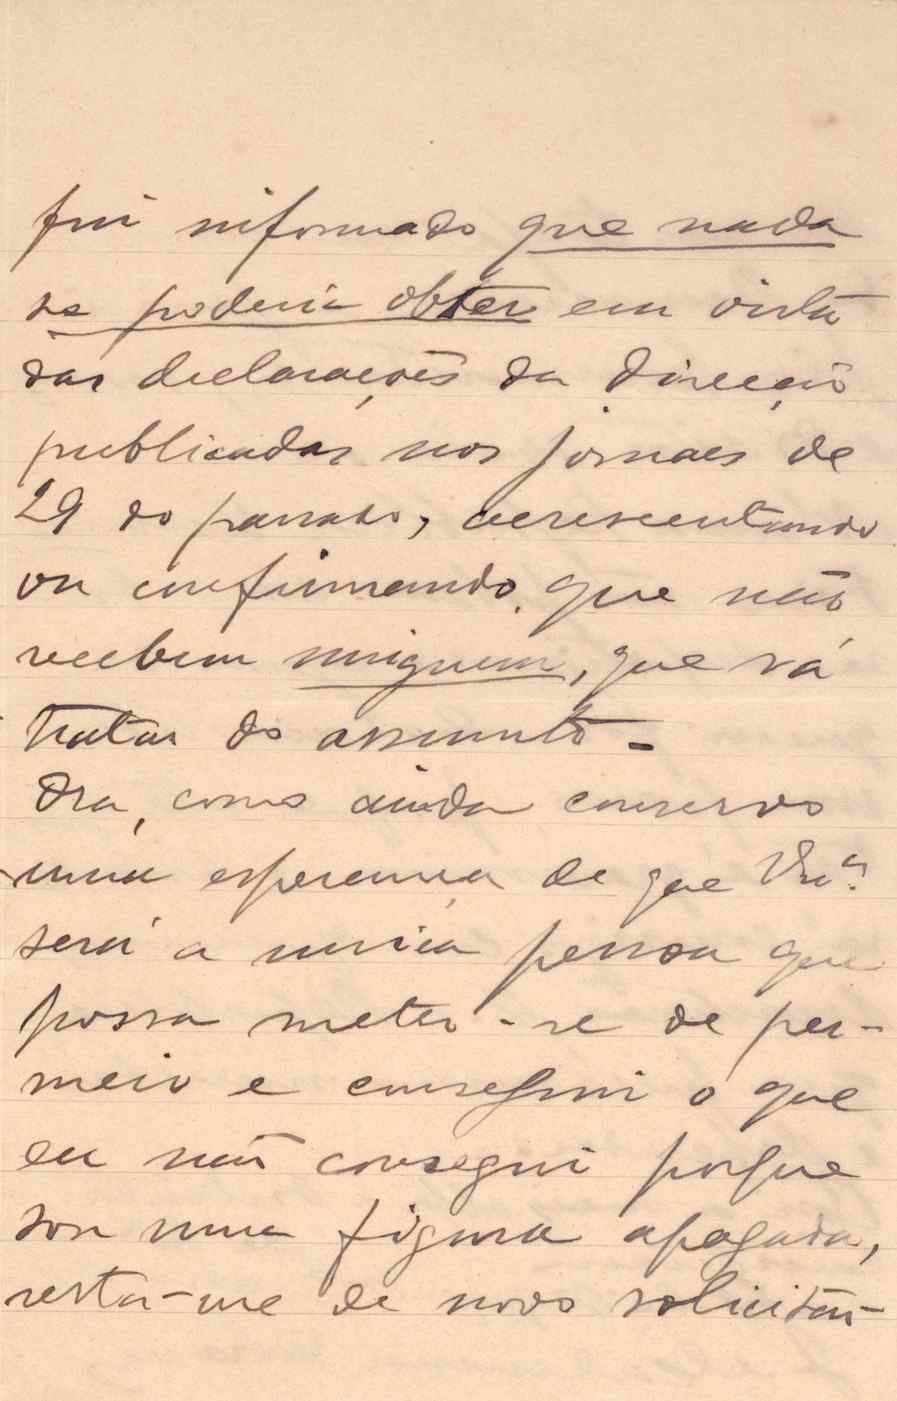 fui informado que nada
se poderia obter em vista
das declarações da Direcção
publicadas nos jornaes de
29 do passado, acrescentando
ou confirmando, que não
recebem ninguem, que vá
tratar do assumto -
Ora, como ainda conservo
uma esperança de que V. Exª.
será a unica pessoa que
possa meter-se de per-
meio e conseguir o que
eu não consegui porque
sou uma figura apagada,
resta-me de novo solicitar-